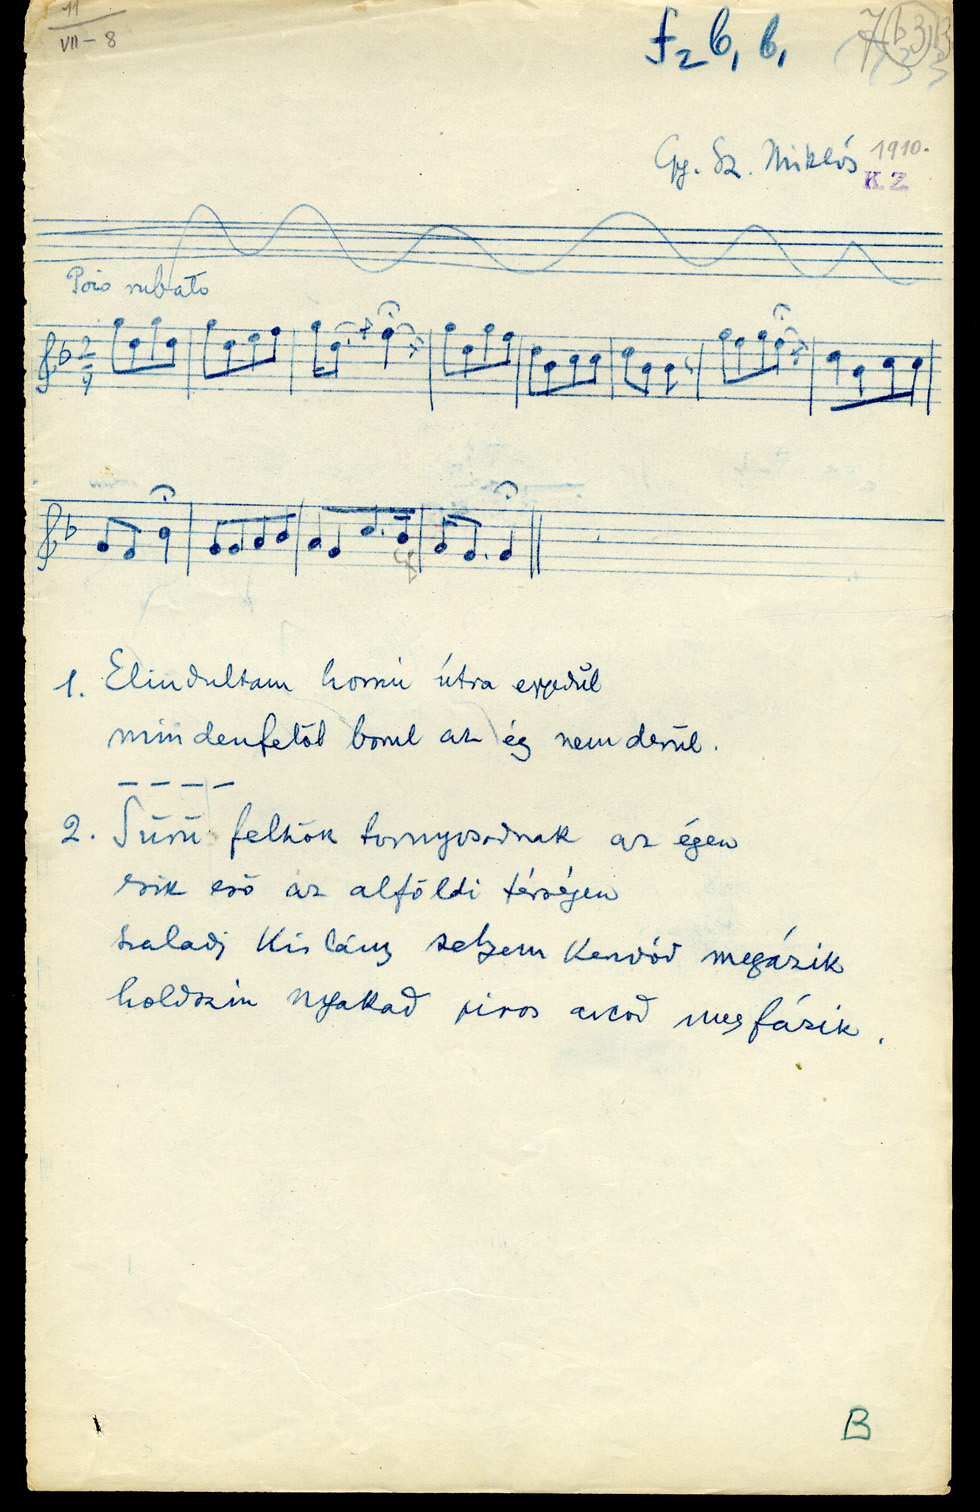 11
VII – 8
f₂ b₁ b₁
7 (b3) 
Gy. Sz. Miklós 1910.
KZ
Poco rubato
2
4
1. Elindultam hosszú útra egyedül
mindenfelöl borul az ég nem derül.
– – – –
2. Sürü felhök tornyosodnak az égen
esik esö az alföldi térségen
szaladj kislány selyem kendöd megázik
holdszin nyakad piros arcod megfázik.
B